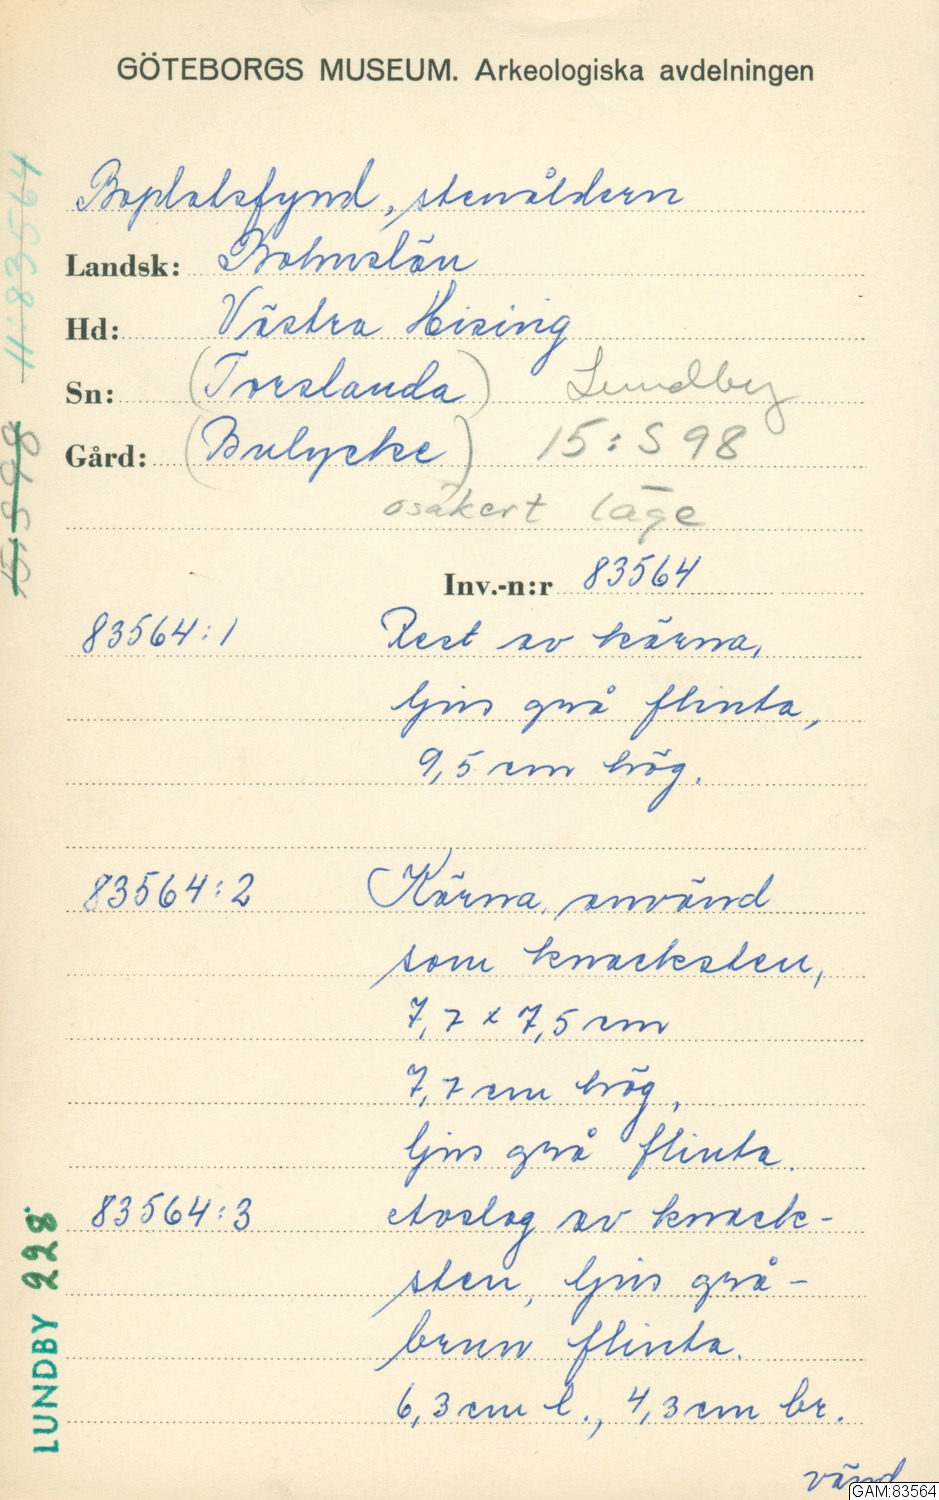 GÖTEBORGS MUSEUM. Arkeologiska avdelningen
Boplatsfynd, stenåldern
Landsk: Bohuslän
Hd: Västra Hising
Sn: (Torslanda) Lundby
Gård: (Bulycke) 15:S 98
osäkert läge
Inv.-n:r 83564
83564:1 Rest av kärna,
ljus grå flinta,
9,5 cm hög.
83564:2 Kärna, använd
som knacksten,
7,7 x 7,5 cm
7,7 cm hög,
ljus grå flinta.
83564:3 Avslag av knack-
sten, ljus grå-
brun flinta.
6,3 cm l., 4,3 cm br.
vänd
GAM:83564
11:83564
15:S98
LUNDBY 228